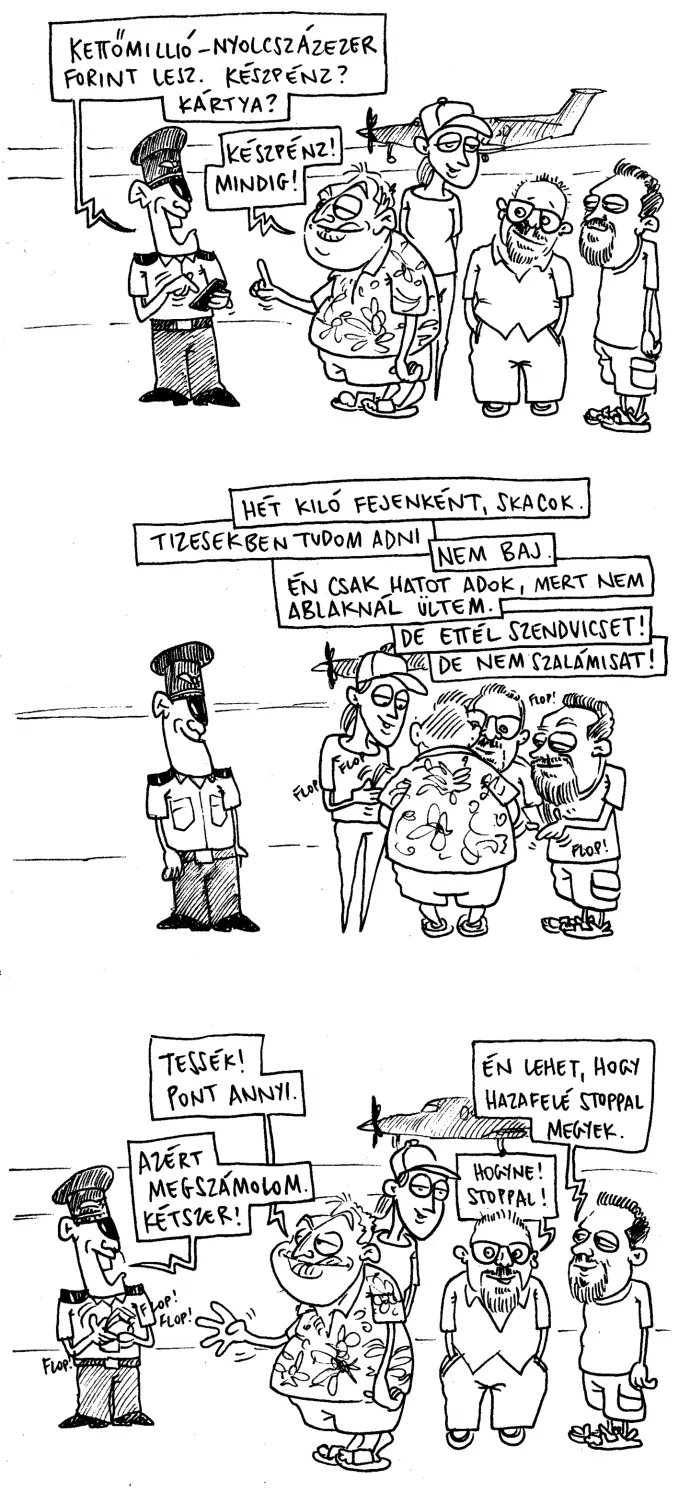 KETTŐMILLIÓ-NYOLCSZÁZEZER
FORINT LESZ. KÉSZPÉNZ?
KÁRTYA?
KÉSZPÉNZ!
MINDIG!
HÉT KILÓ FEJENKÉNT, SKACOK.
TIZESEKBEN TUDOM ADNI
NEM BAJ.
ÉN CSAK HATOT ADOK, MERT NEM
ABLAKNÁL ÜLTEM.
DE ETTÉL SZENDVICSET!
DE NEM SZALÁMISAT!
FLOP!
FLOP
FLOP!
FLOP!
TESSÉK!
PONT ANNYI.
AZÉRT
MEGSZÁMOLOM.
KÉTSZER!
ÉN LEHET, HOGY
HAZAFELÉ STOPPAL
MEGYEK.
HOGYNE!
STOPPAL!
FLOP!
FLOP!
FLOP!